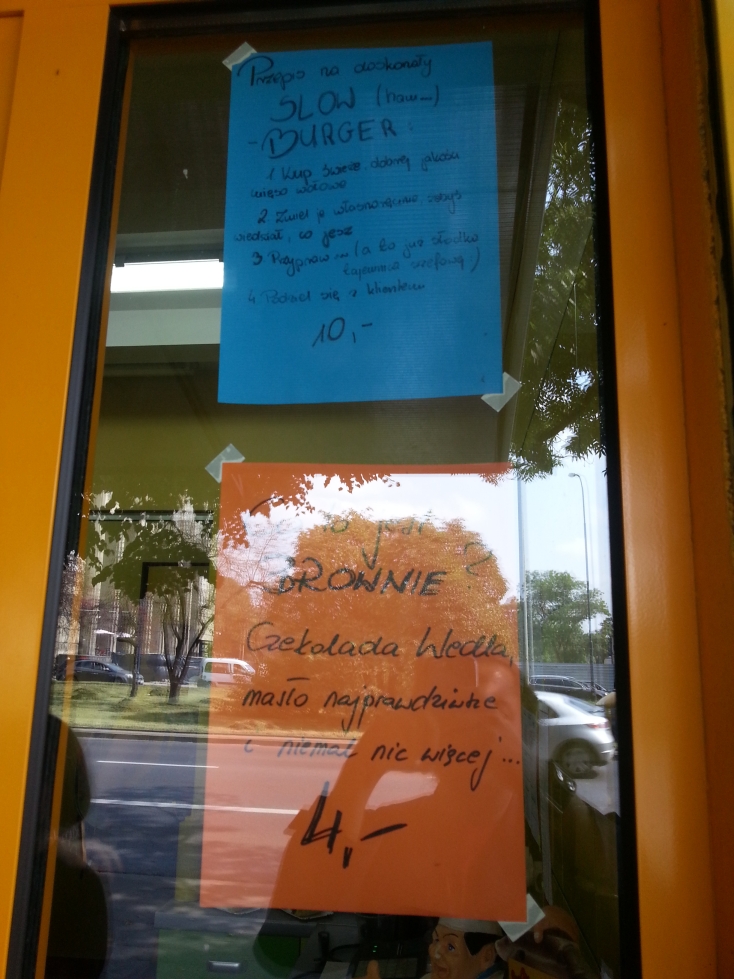 Przepis na doskonały
SLOW (ham...)
-BURGER:
1 Kup świeże, dobrej jakości
mięso wołowe
2. Zmiel je własnoręcznie, żebyś
wiedział, co jesz
3 Przypraw... (a to już słodka
tajemnica szefowej)
4. Podziel się z klientem
10,-
Co to jest
BROWNIE?
Czekolada Wedla,
masło najprawdziwsze
i niemal nic więcej...
4,-